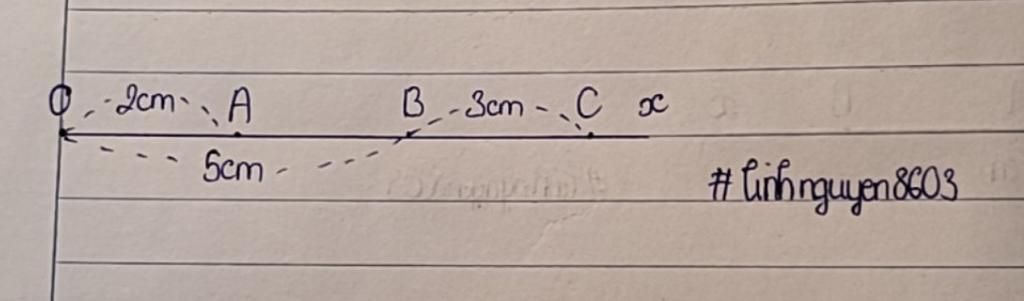 O 2cm A B 3cm C x
5cm
#linhnguyen8603